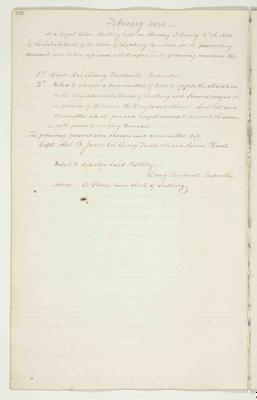 February 1844
At a legal town Meeting held on Monday February
by the inhabitants of the town of Sudbury to which on the
warrant was taken up and acted upon in the following manner viz.
1st Chose Col Drury Fairbanks Moderator
2d Voted to choose a committee of three to oppose the alteration
in the lines between the towns of Sudbury and prayed for
in petition of and others And that said
Committee use all fair and lawful means to prevent the same
with power to employ Counsel
The following persons were chosen said committee viz
Capt Abel B Jones, Col Drury Fairbanks and Aaron Hunt
Voted to dissolve said Meeting
Drury Fairbanks Moderator
Attest town Clerk of Sudbury